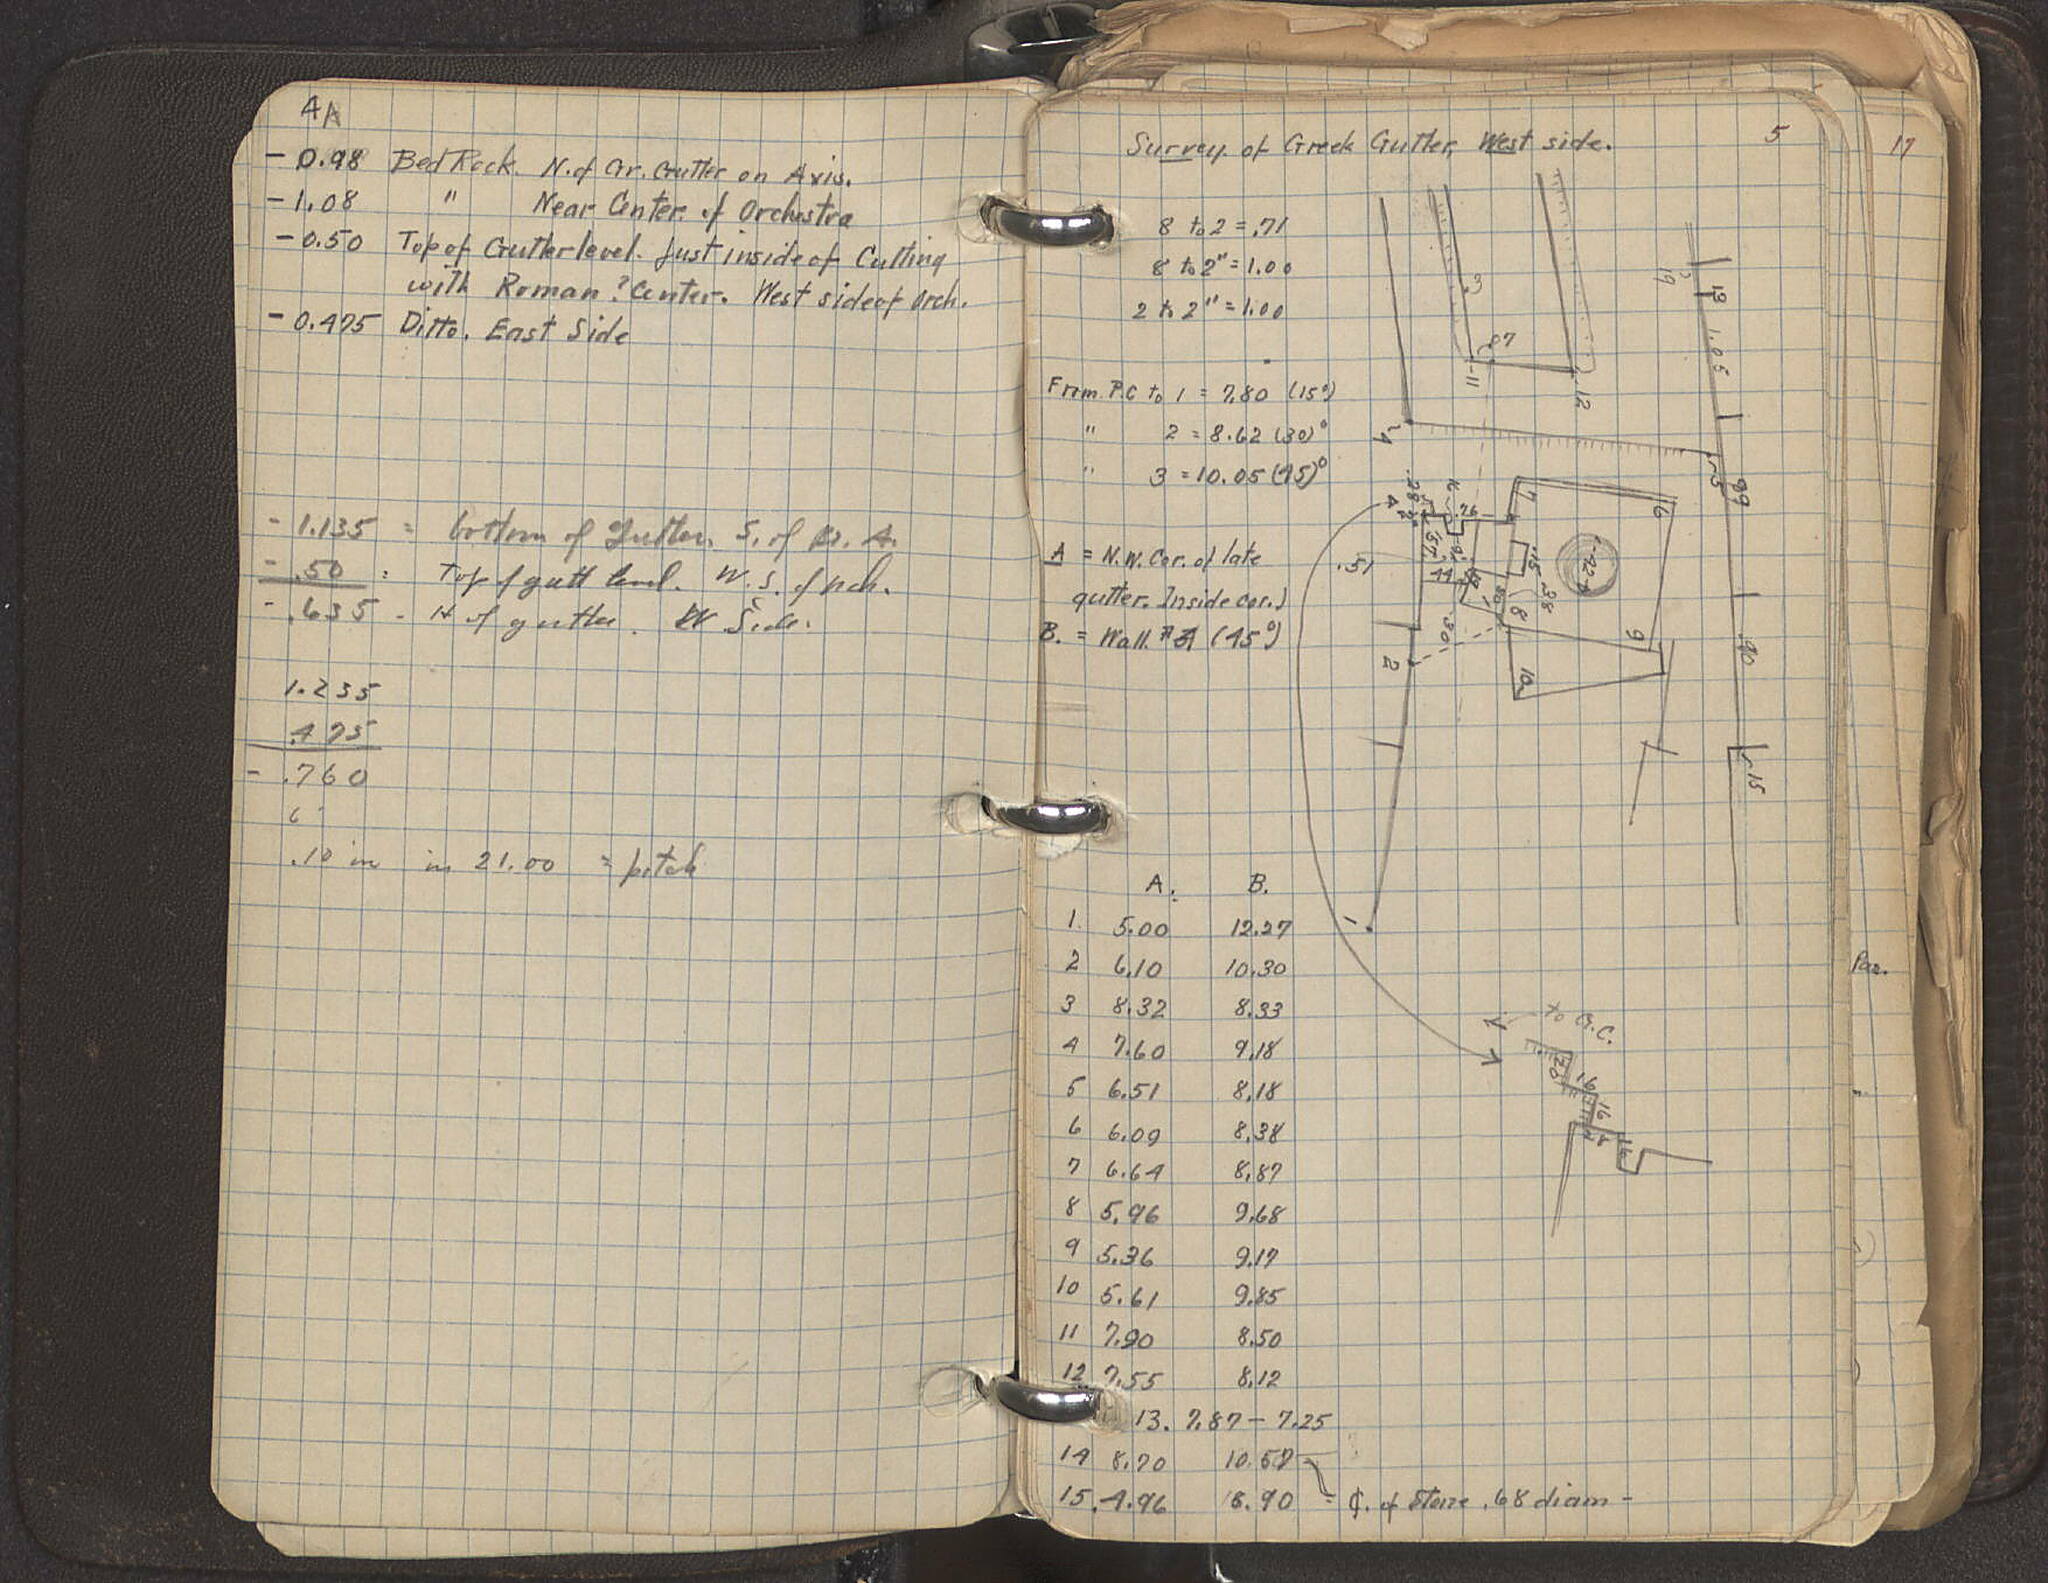 4A
- 0.98 Bed Rock. N. of Gr. Gutter on Axis.
- 1.08 " Near Center of Orchestra
- 0.50 Top of Gutter level. Just inside of Cutting
with Roman ? Center. West side of Orch.
- 0.475 Ditto. East Side
- 1.135 = bottom of Gutter. S. of
- .50 : Top of gutt level. W. S. of rch.
- .635 - H of gutter. W Side.
1.235
.475
- .760
.10 in in 21.00 = pitch
Survey of Greek Gutter, West side. 5
17
8 to 2 = .71
8 to 2" = 1.00
2 to 2" = 1.00
From P.C to 1 = 7.80 (15°)
" 2 = 8.62 (30)°
" 3 = 10.05 (45)°
A = N.W. Cor. of late
gutter. Inside cor.)
B. = Wall. (45°)
3
.87
11
12
4
5
19
13
1.05
.89
.90
15
.51
.28
2"
.16
.76
.57
.44
.30
.15
.38
7
6
8
9
10
2
1
A. B.
1. 5.00 12.27
2 6.10 10.30
3 8.32 8.33
4 7.60 9.18
5 6.51 8.18
6 6.09 8.38
7 6.64 8.87
8 5.96 9.68
9 5.36 9.17
10 5.61 9.85
11 7.90 8.50
12 7.55 8.12
13. 7.87 - 7.25
14 8.70 10.57
15. 4.96 8.90 = ₵. of Stone .68 diam -
to O.C.
.20
16
16
14
Par.